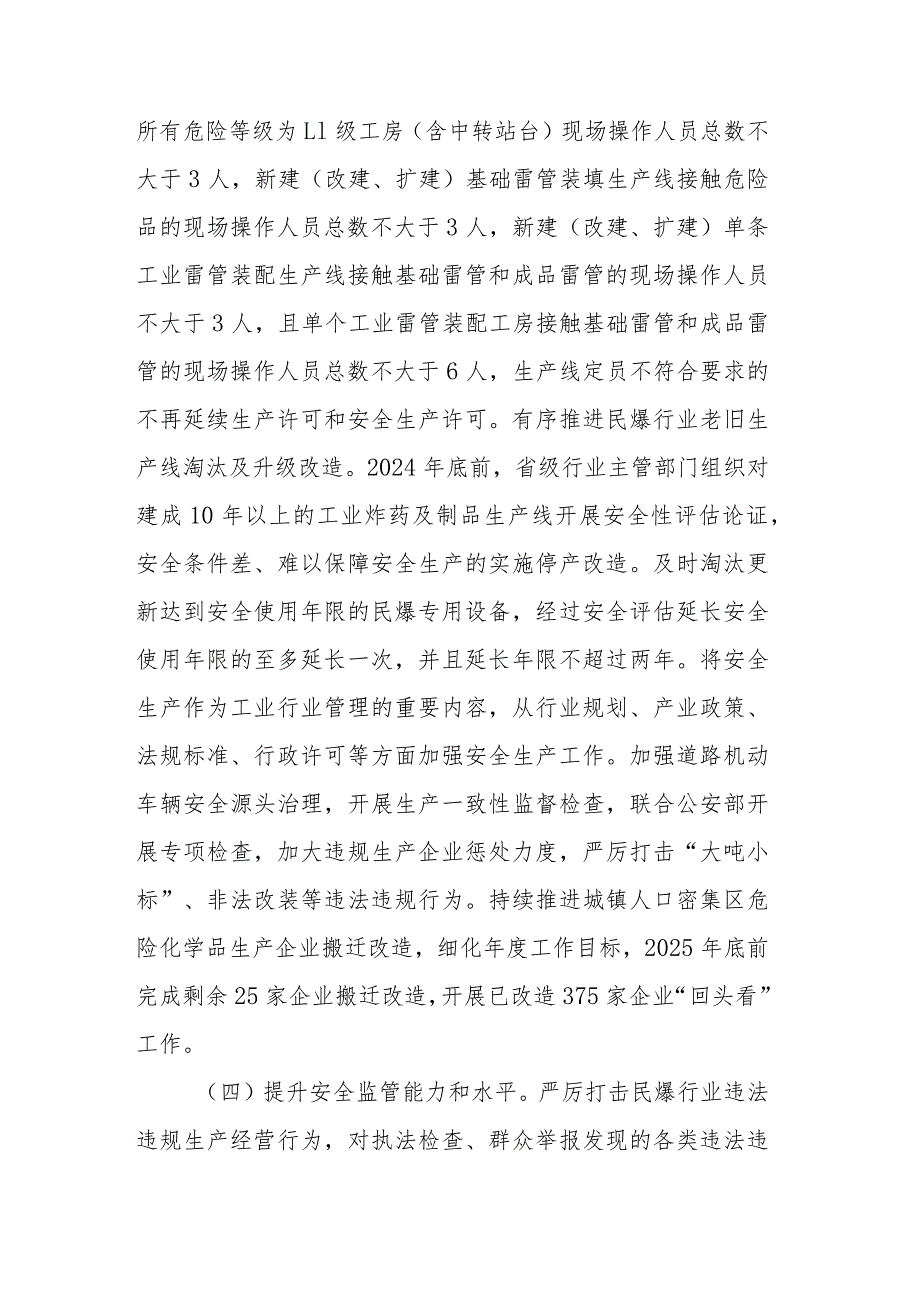 所有危险等级为Ll级工房（含中转站台）现场操作人员总数不
大于3人，新建（改建、扩建）基础雷管装填生产线接触危险
品的现场操作人员总数不大于3人，新建（改建、扩建）单条
工业雷管装配生产线接触基础雷管和成品雷管的现场操作人员
不大于3人，且单个工业雷管装配工房接触基础雷管和成品雷
管的现场操作人员总数不大于6人，生产线定员不符合要求的
不再延续生产许可和安全生产许可。有序推进民爆行业老旧生
产线淘汰及升级改造。2024年底前，省级行业主管部门组织对
建成10年以上的工业炸药及制品生产线开展安全性评估论证，
安全条件差、难以保障安全生产的实施停产改造。及时淘汰更
新达到安全使用年限的民爆专用设备，经过安全评估延长安全
使用年限的至多延长一次，并且延长年限不超过两年。将安全
生产作为工业行业管理的重要内容，从行业规划、产业政策、
法规标准、行政许可等方面加强安全生产工作。加强道路机动
车辆安全源头治理，开展生产一致性监督检查，联合公安部开
展专项检查，加大违规生产企业惩处力度，严厉打击“大吨小
标”、非法改装等违法违规行为。持续推进城镇人口密集区危
险化学品生产企业搬迁改造，细化年度工作目标，2025年底前
完成剩余25家企业搬迁改造，开展已改造375家企业“回头看”
工作。
（四）提升安全监管能力和水平。严厉打击民爆行业违法
违规生产经营行为，对执法检查、群众举报发现的各类违法违